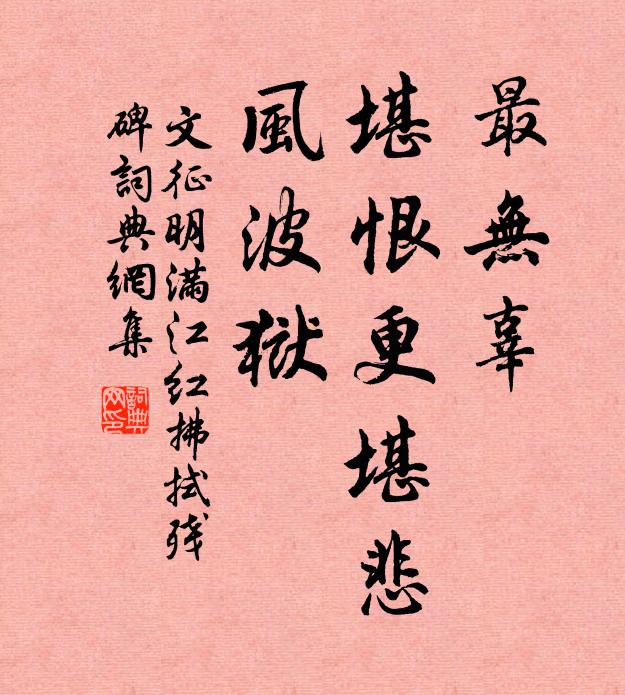 最無辜
堪恨更堪悲
風波獄
文征明滿江紅拂拭残
碑詞典網集
詞典
网印